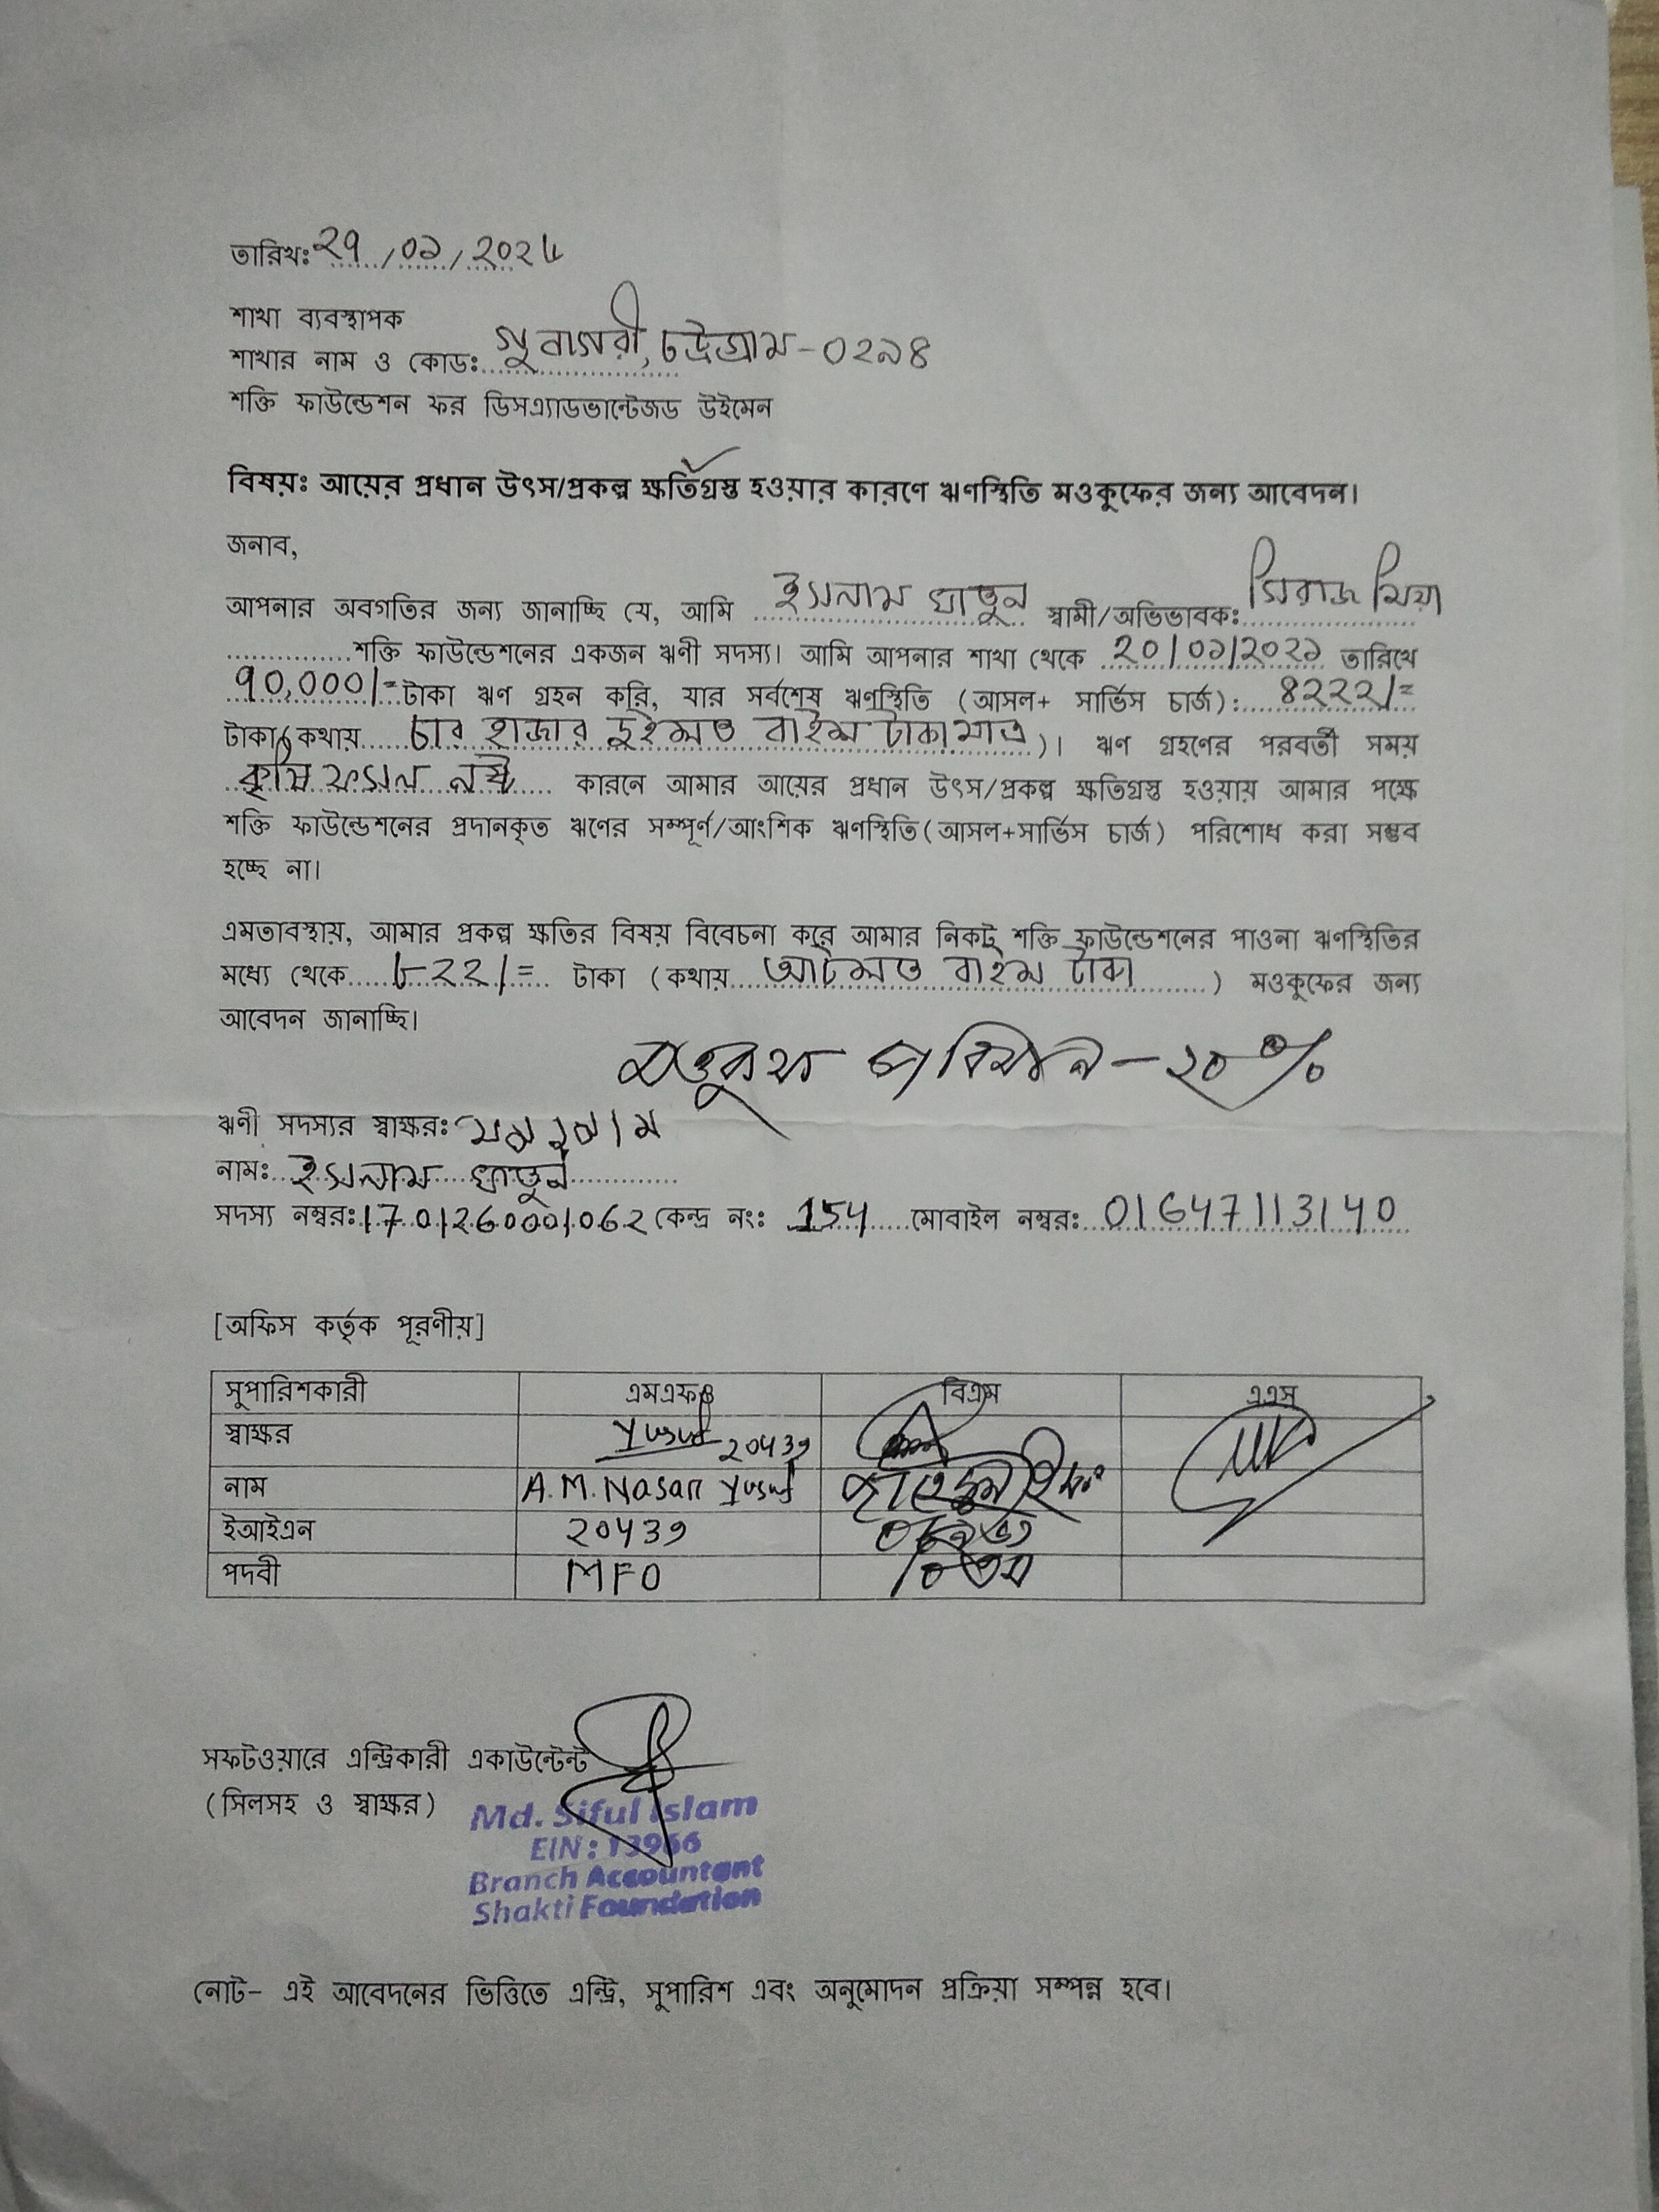 তারিখঃ ২৭/০১/২০২৫
শাখা ব্যবস্থাপক
শাখার নাম ও কোডঃ গুনাগরী, চট্রগ্রাম-০২৯৪
শক্তি ফাউন্ডেশন ফর ডিসএ্যাডভান্টেজড উইমেন
বিষয়ঃ আয়ের প্রধান উৎস/প্রকল্প ক্ষতিগ্রস্ত হওয়ার কারণে ঋণস্থিতি মওকুফের জন্য আবেদন।
জনাব,
আপনার অবগতির জন্য জানাচ্ছি যে, আমি ইসলাম খাতুন স্বামী/অভিভাবকঃ সিরাজ মিয়া
শক্তি ফাউন্ডেশনের একজন ঋণী সদস্য। আমি আপনার শাখা থেকে ২০/০১/২০২১ তারিখে
৭০,০০০/= টাকা ঋণ গ্রহন করি, যার সর্বশেষ ঋণস্থিতি (আসল+ সার্ভিস চার্জ): ৪২২২/=
টাকা (কথায় চার হাজার দুইশত বাইশ টাকা মাত্র)। ঋণ গ্রহণের পরবর্তী সময়
কৃষি ফসল নষ্ট কারনে আমার আয়ের প্রধান উৎস/প্রকল্প ক্ষতিগ্রস্ত হওয়ায় আমার পক্ষে
শক্তি ফাউন্ডেশনের প্রদানকৃত ঋণের সম্পূর্ণ/আংশিক ঋণস্থিতি(আসল+সার্ভিস চার্জ) পরিশোধ করা সম্ভব
হচ্ছে না।
এমতাবস্থায়, আমার প্রকল্প ক্ষতির বিষয় বিবেচনা করে আমার নিকট শক্তি ফাউন্ডেশনের পাওনা ঋণস্থিতির
মধ্যে থেকে ৮২২/= টাকা (কথায় আটশত বাইশ টাকা) মওকুফের জন্য
আবেদন জানাচ্ছি।
মওকুফ পরিমান - ২০%
ঋণী সদস্যর স্বাক্ষরঃ
নামঃ ইসলাম খাতুন
সদস্য নম্বরঃ 1701260001062 কেন্দ্র নং: 154 মোবাইল নম্বরঃ 01647113140
[অফিস কর্তৃক পূরণীয়]
সুপারিশকারী এমএফও বিএম এএস
স্বাক্ষর Yusuf 20439
নাম A.M. Nasan Yusuf
ইআইএন 20439
পদবী MFO বিএম
সফটওয়ারে এন্ট্রিকারী একাউন্টেন্ট
(সিলসহ ও স্বাক্ষর)
Md. Siful Islam
EIN: 13966
Branch Accountant
Shakti Foundation
নোট- এই আবেদনের ভিত্তিতে এন্ট্রি, সুপারিশ এবং অনুমোদন প্রক্রিয়া সম্পন্ন হবে।